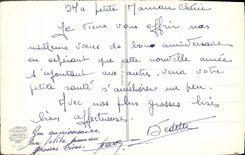 Ma petite Maman Chérie
Je viens vous offrir nos
meilleurs vœux de bon anniversaire
en espérant que cette nouvelle année
s'ajoutant aux autres, verra votre
petite santé s'améliorer un peu.
Avec nos plus grosses bises
bien affectueuses.
Dédette
Bon anniversaire
ma petite maman
grosses bises.